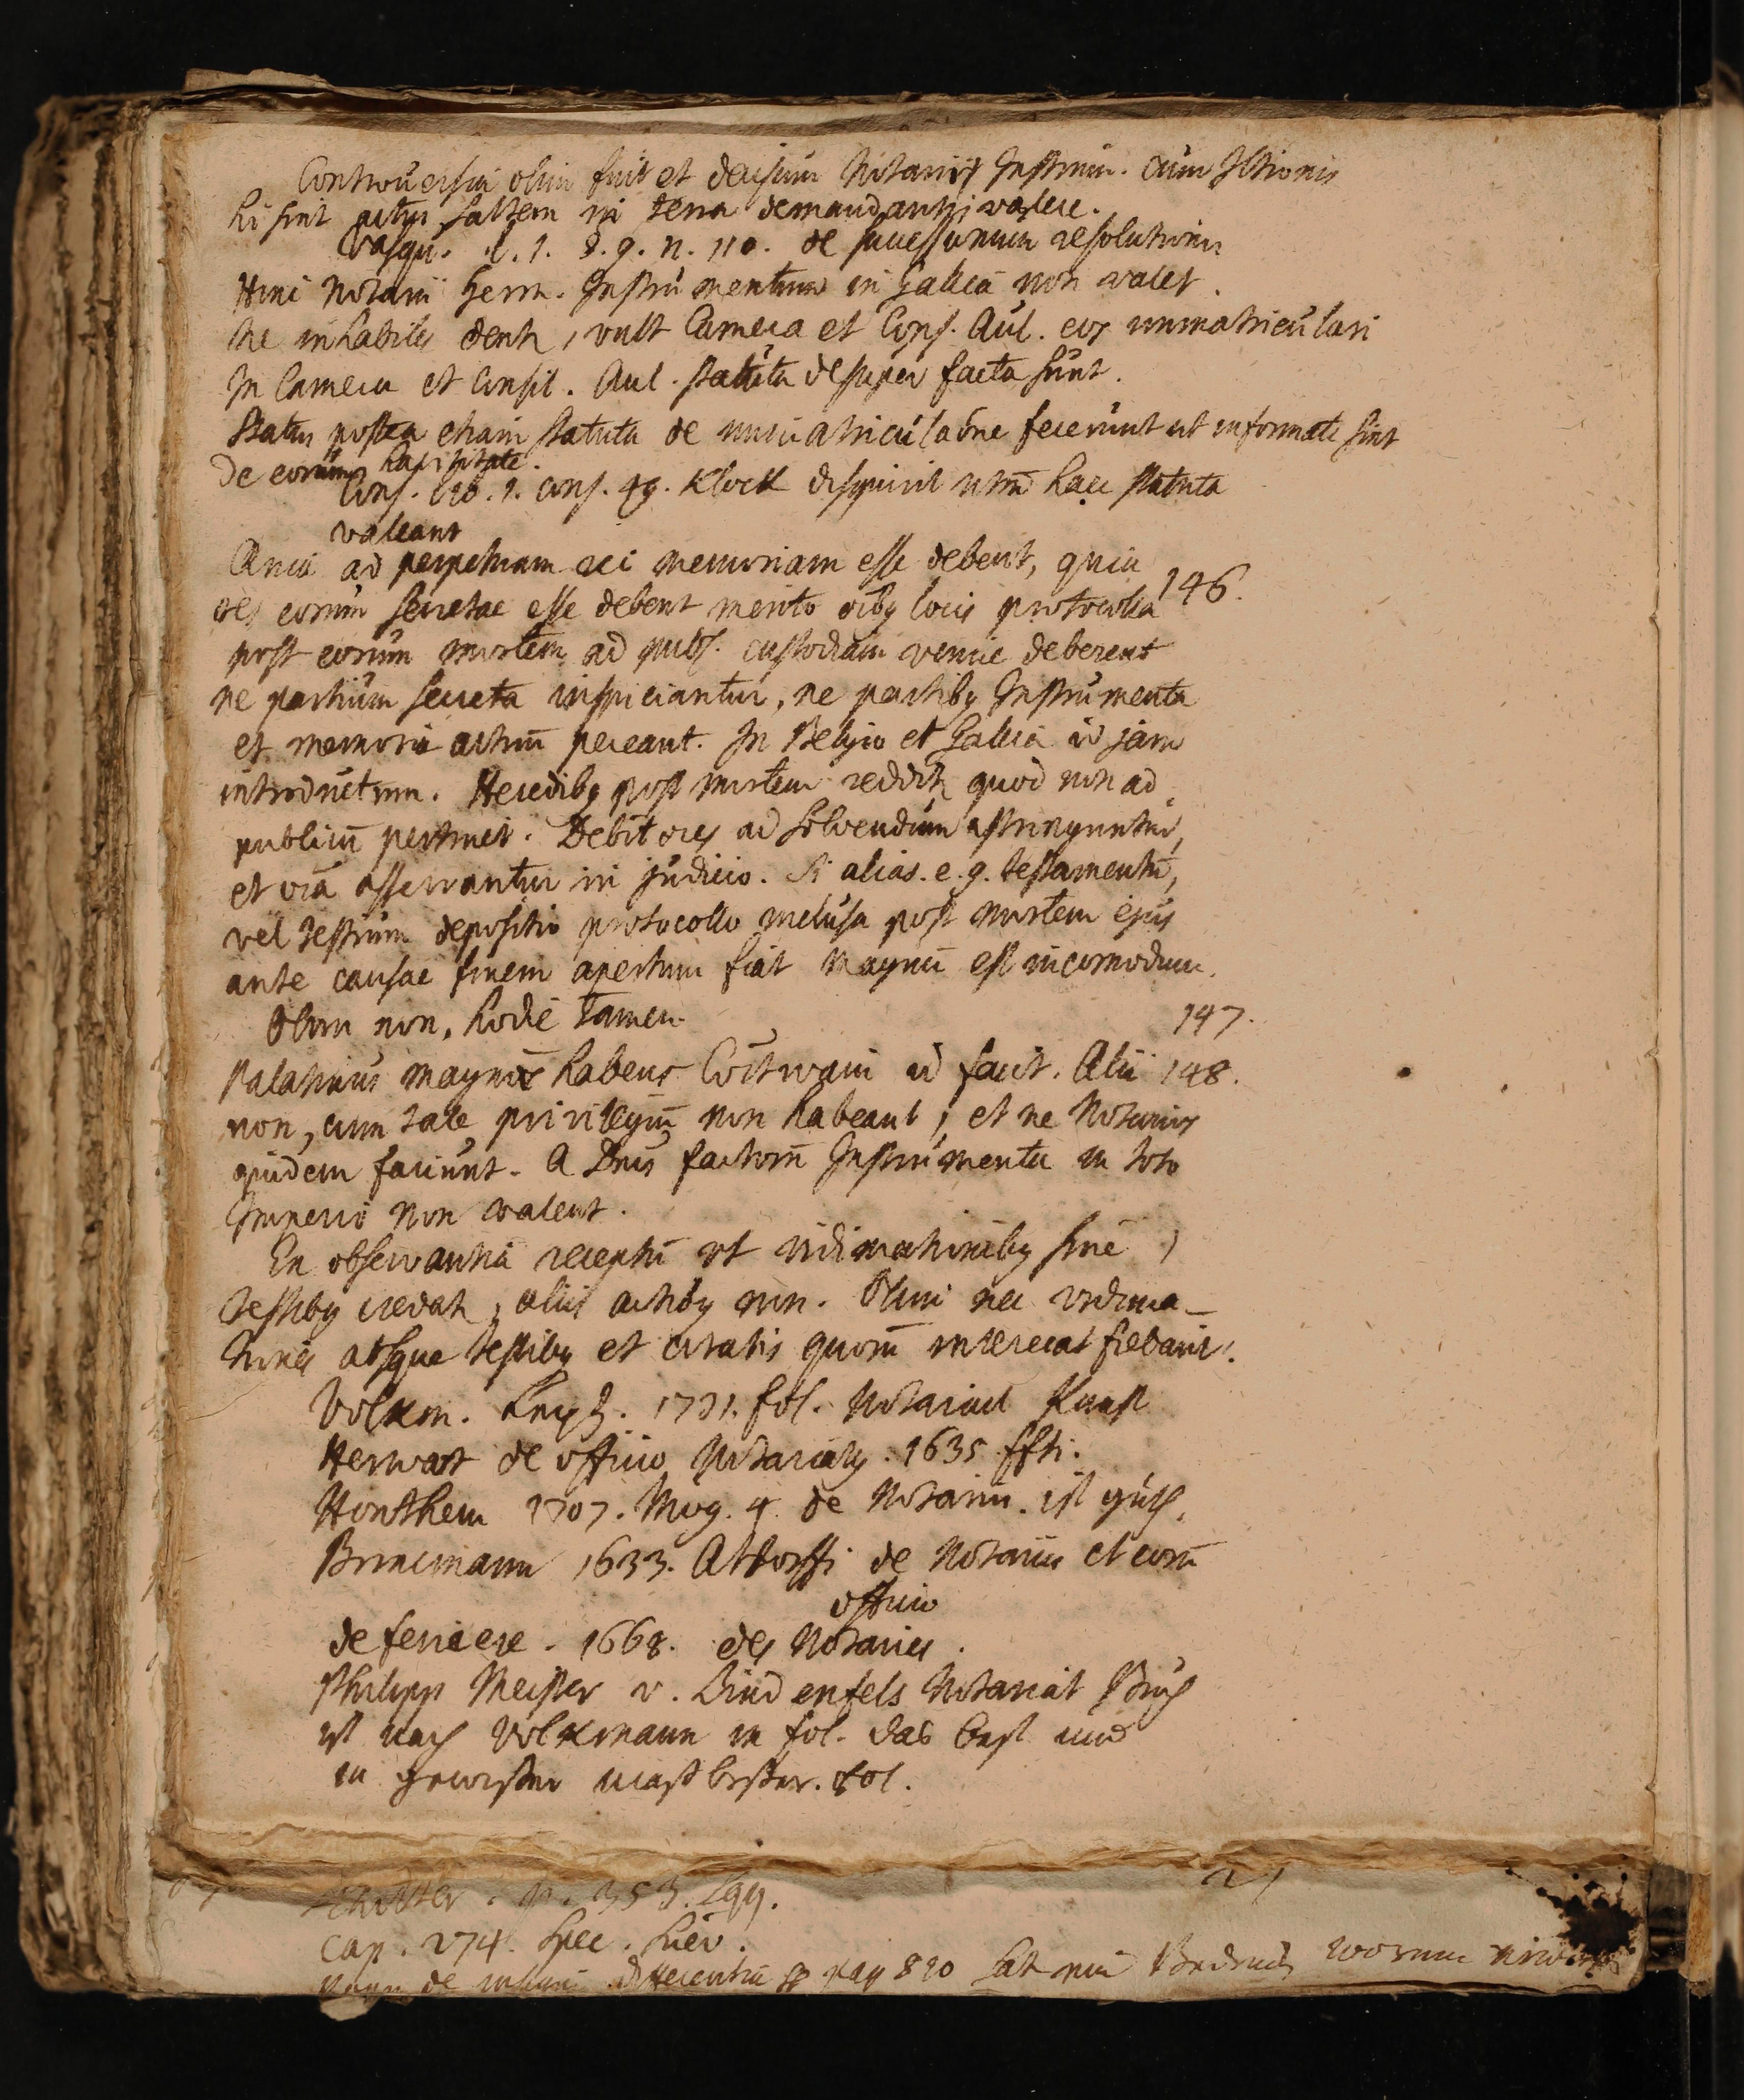 Controversum olim fuit et decisum Notarii Instrum. cum
hi sint actus saltem in terra demandantis valere.
Vasqu. l. 1. §. 9. n. 110. de successionum resolutione
Hinc Notarii Germ. Instrumentum in Gallia non valet.
Ne inhabiles dentr, vult Camera et Cons. Aul. eos immatriculari
In Camera et Consil. Aul. statuta desuper facta sunt.
Status postea etiam statuta de immatriculaōne fecerunt ut informati sint
de eorum
Cons. 120. 1. cons. 49. Klock disquirit utrū haec statuta
valeant
ad perpetuam rei memoriam esse debent, quia
res eorum secretae esse debent merito oibg locis protocolla 146.
post eorum mortem ad publ. custodiam venire deberent
ne partium secreta inspiciantur, ne partibg Instrumenta
et memoria actuū pereant. In Belgio et Gallia id jam
introductum. Heredibg post mortem reddit quod non ad
publicū pertinet. Debitores ad solvendum astringuntur,
et oīa asservantur in judicio. Si alias. e. g. testamentū,
vel testium depositio protocollo inclusa post mortem ejus
ante causae finem apertum fiat magnū est incomodum.
Olim non, hodie tamen 147.
Palatinus magnus habens Comitivam id facit. Alii 148.
non, cum tale privilegiū non habeant, et ne Notarios
quidem faciunt. A Dnis factorū Instrumenta in toto
Imperio non valent.
Ex observantia receptū ut vidimationibg sine
testibg credatr, aliis actibg non. Olim nec vidima-
tiones absque testibg et citatis quorū intererat fiebant.
Volkm. Leipz. 1721. fol. Notariat Kunst
Herwart de officio Notariorg. 1635 ffti.
Hontheim 1707. Mog. 4. de Notariis. ist guth.
Brucmann 1633. Altorffi de Notariis et eorū
officio
de ferriere. 1668. des Notaires.
Philipp Meister v. Lindenfels Notariat Buch
ist nach Volkmann in fol. das best und
fol.
p. 353. sqq.
cap. 274. Spec.
de differentiis pag 820 hat ein worum